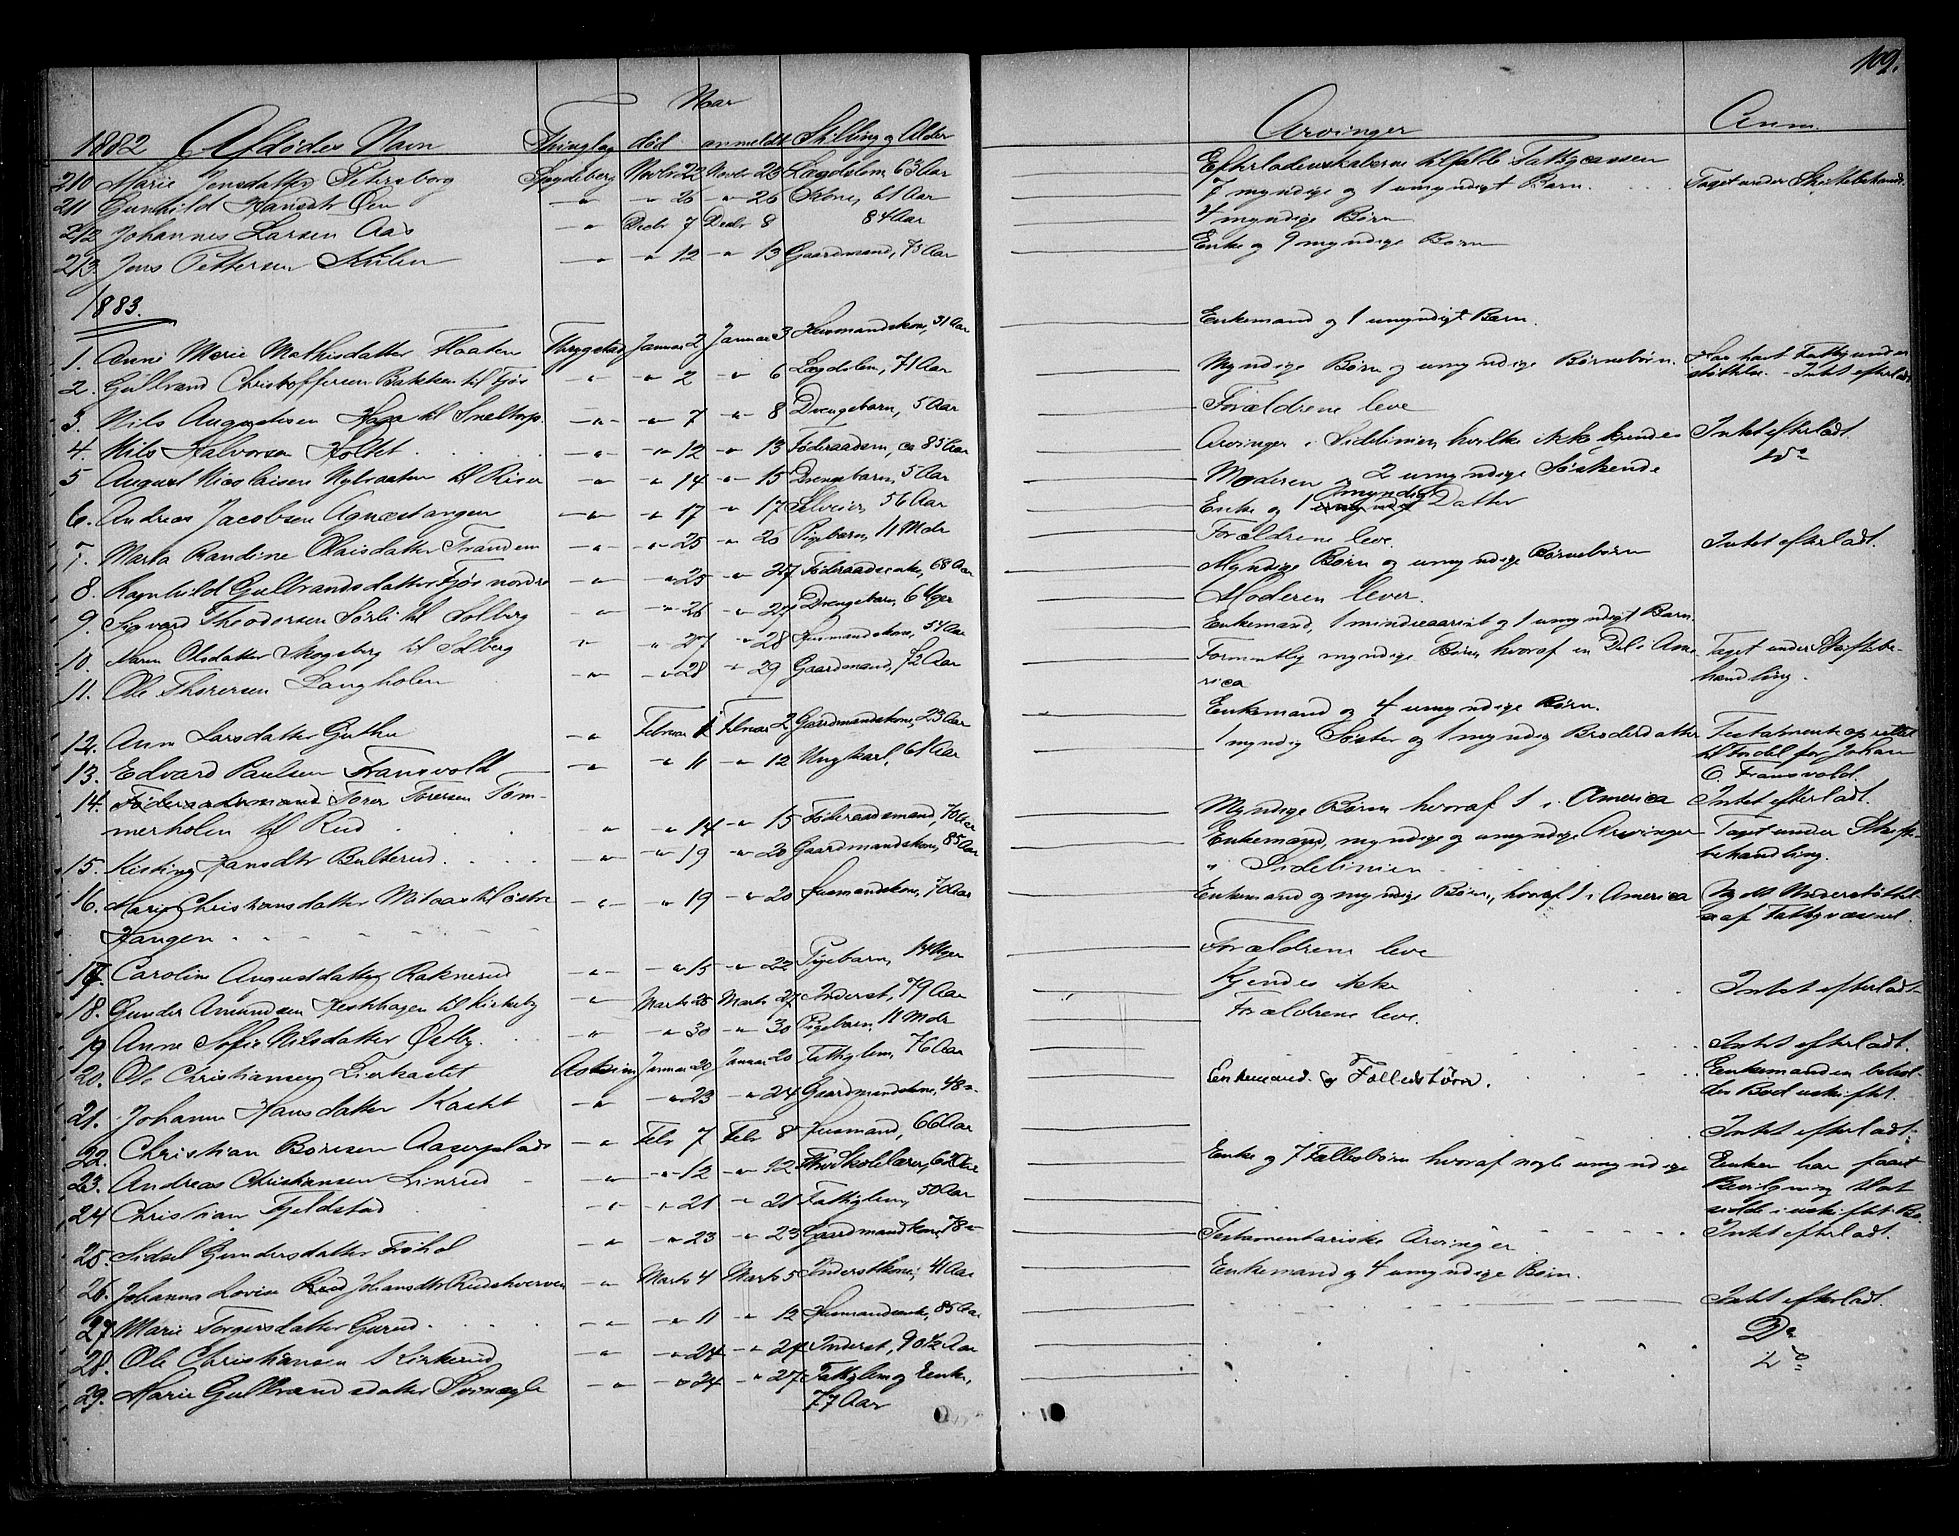 109.
1882 Afdødes Navn Thinglag Naar død anmeldt Stilling og Alder Arvinger Anm.
210 Marie Jensdatter Petersborg Spydeberg Novbr 22 Novbr 23 Lægdslem, 63 Aar Efterladenskaberne tilfaldt Fattigcassen
211 Gunhild Hansdtr Øen " " 26 " 26 Kone, 61 Aar 7 myndige og 1 umyndigt Barn. Taget under Skiftebehand.
212 Johannes Larsen Aas " Decbr 7 Decbr 8 84 Aar 4 myndige Børn
213 Jens Pettersen Skulen " " 12 " 13 Gaardmand, 73 Aar Enke og 9 myndige Børn
1883.
1. Anne Marie Mathisdatter Haaten Thrygstad Januar 2 Januar 3 Husmandskone, 31 Aar Enkemand og 1 umyndigt Barn.
2. Gulbrand Christoffersen Bakken til Fjøs " " 2 " 6 Lægdslem, 71 Aar Myndige Børn og umyndige Børnebørn. Har havt Fattigunder
støttelse. - Intet efterladt
3. Nils Augustsen Haga til Sneltorp " " 7 " 8 Drengebarn, 5 Aar Forældrene leve
4. Nils Halvorsen Holtet " " 12 " 13 Føderaadsm, ca 85 Aar Arvinger i Sidelinien, hvilke ikke kjendes Intet efterladt.
5 August Nicolaisen Nybraaten til Riser " " 14 " 15 Drengebarn, 5 Aar Moderen og 2 umyndige Søskende Do
6. Andreas Jacobsen Agnæstangen " " 17 " 17 Selveier, 56 Aar Enke og 1 umyndig Datter
7. Marta Randine Olaisdatter Trandem " " 25 " 26 Pigebarn, 11 Mdr Forældrene leve.
8. Ragnhild Gulbrandsdatter Fjøs nordre " " 25 " 27 Føderaadsenke, 68 Aar Myndige Børn og umyndige Børnebørn Intet efterladt.
9. Sigvard Theodorsen Sørli til Solberg " " 26 " 27 Drengebarn, 6 Uger Moderen lever.
10. Maren Olsdatter Skogsberg til Solberg " " 27 " 28 Husmandskone, 54 Aar Enkemand, 1 mindreaarigt og 1 umyndigt Barn.
11. Ole Thoresen Langholen " " 28 " 29 Gaardmand, 72 Aar Formentlig myndige Børn, hvoraf en Del i Ame Taget under Skiftebe-
rica handling.
12. Anne Larsdatter Guthu " Februar 1 Februar 2 Gaardmandskone, 23 Aar Enkemand og 4 umyndige Børn.
13. Edvard Paulsen Fransvold " " 11 " 12 Ungkarl, 61 Aar 1 myndig Søster og 1 myndig Broderdatter Testamente oprettet
til Fordel for Johan
C. Fransvold.
14. Føderaadsmand Torer Torersen Tøm-
merholen til Rud " " 14 " 15 Føderaadsmand, 70 Aar Myndige Børn hvoraf 1 i America Intet efterladt.
15. Kisting Hansdtr Bulterud " " 19 " 20 Gaardmandskone, 85 Aar Enkemand, myndige og umyndige Arvinger Taget under Skifte
i Sidelinien behandling.
16. Marie Christensdatter til østre " " 19 " 20 Husmandskone, 70 Aar Enkemand og myndige Børn, hvoraf 1 i America Nydt Understøttel-
Haugen se af Fattigvæsenet.
17 Caroline Augustdatter Raknerud " " 15 " 22 Pigebarn, 14 Uger Forældrene leve
18. Gunder Amundsen Hesthagen til Kirkeby " Marts 25 Marts 27 Inderst, 79 Aar Kjendes ikke Intet efterladt
19 Anne Sofie Nilsdatter Østby. " " 30 " 30 Pigebarn, 11 Mdr Forældrene leve.
20. Ole Christiansen Lierkastet Askim Januar 20 Januar 20 Fattiglem, 76 Aar Intet efterladt.
21. Johanne Hansdatter Kastet " " 23 " 24 Gaardmandskone, 48 " Enkemand og Fællesbørn. Enkemanden behol-
der Boet uskiftet.
22. Christian Børesen Aaserplads " Febr 7 Febr 8 Husmand, 66 Aar Intet efterladt.
23. Andreas Christiansen Linrud " " 12 " 12 Skolelærer, 62 Aar Enke og 7 Fællesbørn hvoraf nogle umyndige Enken har faaet
Bevilgning til at
sidde i uskiftet Bo.
24 Christian Fjeldstad " " 21 " 21 Fattiglem, 50 Aar Intet efterladt.
25. Sidsel Gundersdatter Frøhol " " 23 " 23 Gaardmandkone, 78 " Testamentariske Arvinger
26. Johanna Lovise Hansdtr Rudskverven " Marts 4 Marts 5 Inderstkone, 41 Aar Enkemand og 4 umyndige Børn.
27 Marie Torgersdatter Gurud " " 11 " 12 Husmandsenke, 85 Aar Intet efterladt.
28. Ole Christiansen Kirkerud " " 24 " 27 Inderst, 90 1/2 Aar Do
29. Marie Gulbrandsdatter Svinægle " " 24 " 27 Fattiglem og Enke, Do
77 Aar